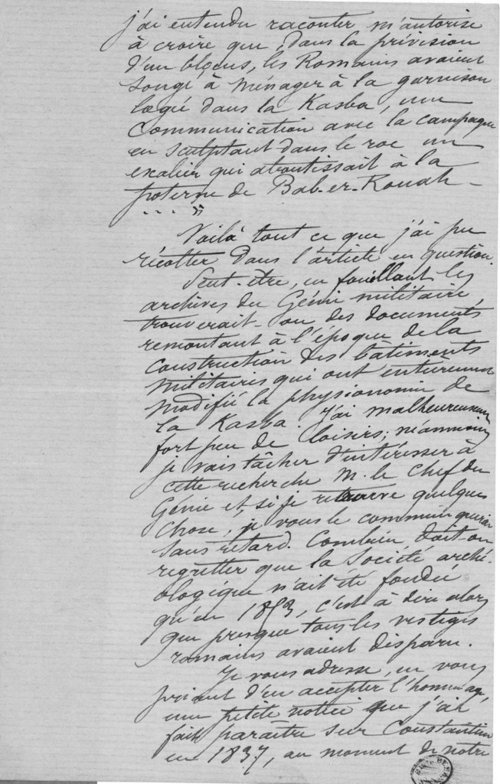 j'ai entendu raconter m'autorise
à croire que, dans la prévision
d'un blocus, les Romains avaient
songé à ménager à la garnison
logée dans la Kasba, une
communication avec la campagne
en sculptant dans le roc un
escalier qui aboutissait à la
poterne de Bab-er-Rouah -
. . . »
Voilà tout ce que j'ai pu
récolter dans l'article en question.
Peut-être, en fouillant les
archives du Génie militaire,
trouverait-on des documents
remontant à l'époque de la
construction des bâtiments
militaires qui ont entièrement
modifié la physionomie de
la Kasba. J'ai malheureusement
fort peu de loisirs; néanmoins
je vais tâcher d'intéresser à
cette recherche M. le Chef du
Génie et, si je retrouve quelque
chose, je vous le communiquerai
sans retard. Combien doit-on
regretter que la Société arché-
ologique n'ait été fondée
qu'en 1853, c'est à dire alors
que presque tous les vestiges
romains avaient disparu.
Je vous adresse, en vous
priant d'en accepter l'hommage,
une petite notice que j'ai
fait paraître sur Constantine
en 1837, au moment de notre